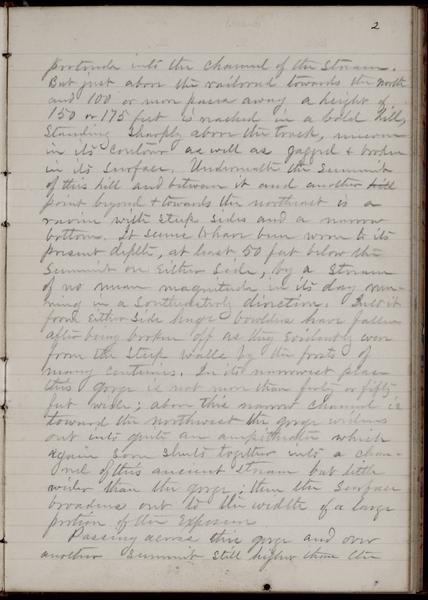 2
protrude into the channel of the stream.
But just above the railroad towards the north
and 100 or more paces away a height of
150 or 175 feet is reached in a bold hill,
standing sharply above the track, uneven
in its contour as well as jagged & broken
in its surface. Underneath the summit
of this hill and between it and another hill
point beyond & towards the northeast is a
ravine with steep sides and a narrow
bottom. It seems to have been worn to its
present depth, at least 50 feet below the
summit on either side, by a stream
of no mean magnitude in its day run-
ning in a Southwesterly direction. Into it
from either side huge boulders have fallen
after being broken off as they evidently were
from the steep walls by the frosts of
many centuries. In its narrowest place
this gorge is not more than forty or fifty
feet wide; above this narrow channel is
toward the northwest the gorge widens
out into quite an ampitheater which
again soon shuts together into a chan-
nel of this ancient stream but little
wider than the gorge; then the surface
broadens out to the width of a large
portion of the exposure.
Passing across this gorge and over
another summit still higher than the